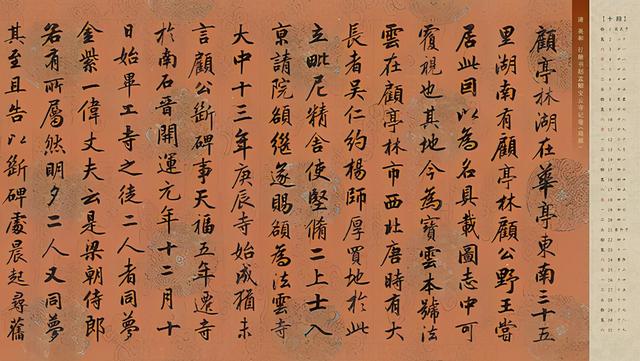 顧亭林湖在華亭東南三十五
里湖南有顧亭林顧公野王嘗
居此因以為名具載圖志中可
覆視也其地今為寶雲本號法
雲在顧亭林市西北唐時有大
長者吴仁约楊師厚買地於此
立毗尼精舍使堅脩二上士入
京請院額繼遂賜額為法雲寺
大中十三年庚辰寺始成猶未
言顧公斷碑事天福五年遷寺
於南石晉開運元年十二月十
日始畢工寺之徒二人者同夢
金紫一偉丈夫云是梁朝侍郎
若有所屬然明夕二人又同夢
其至且告以斷碑處晨起尋舊
清 英和 行楷书赵孟頫宝云寺记卷（局部）